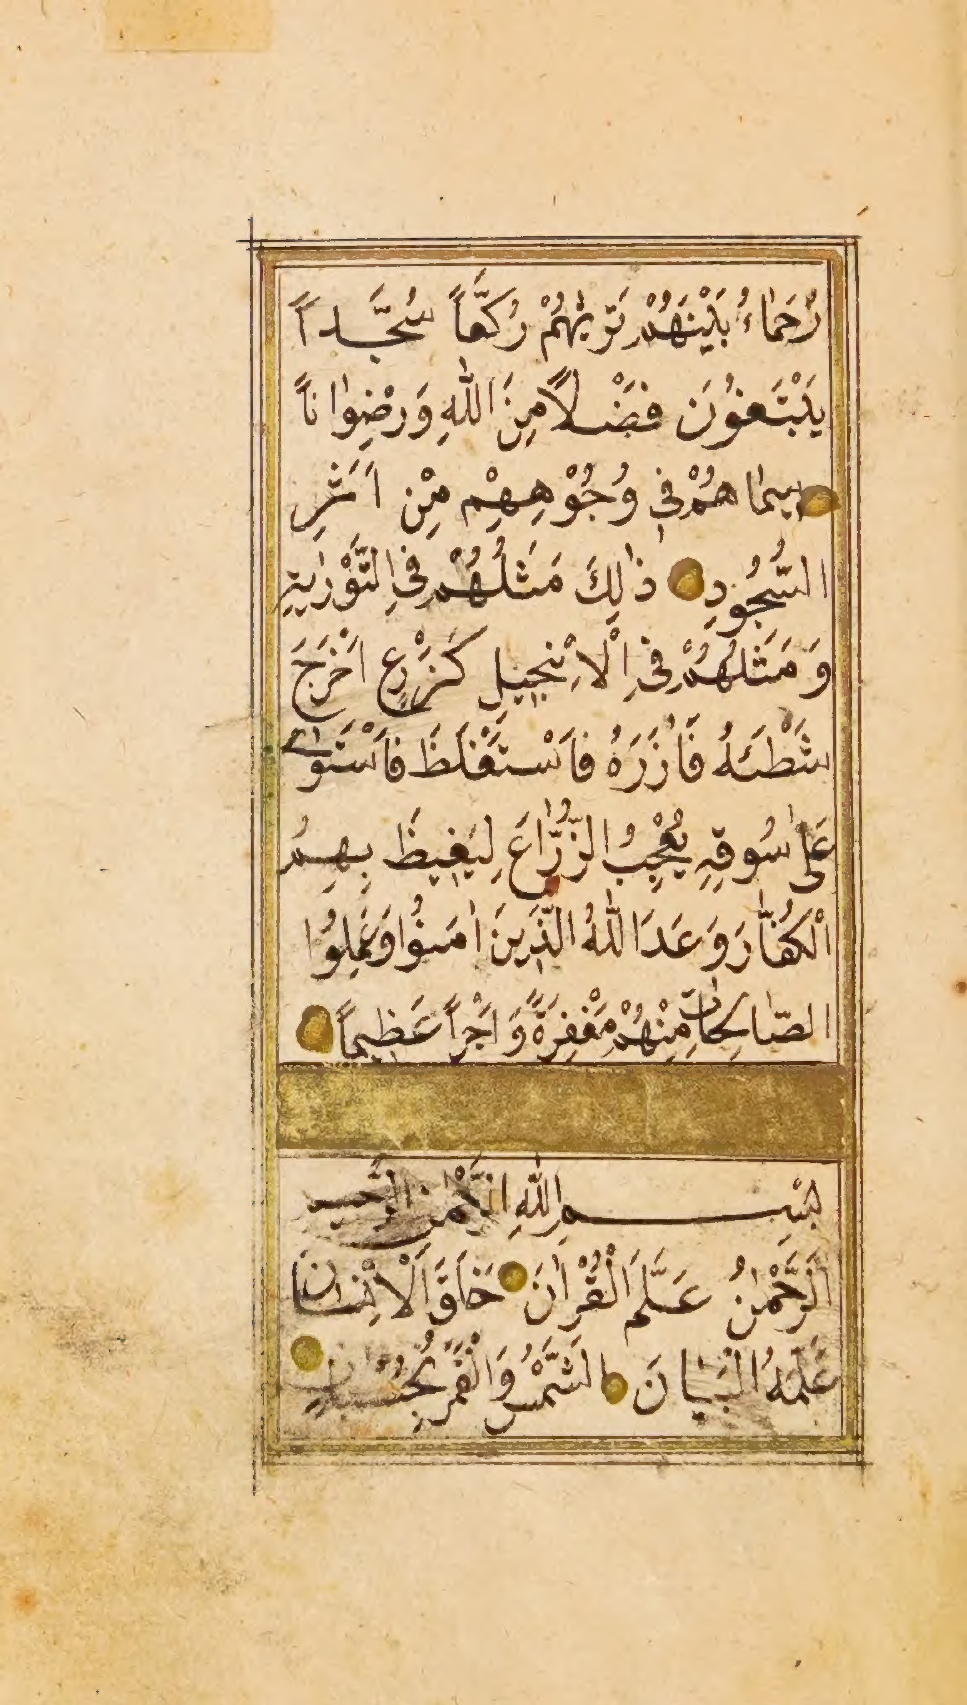 رُحَمَاءُ بَيْنَهُمْ تَرٰيهُمْ رُكَّعاً سُجَّداً
يَبْتَغُونَ فَضْلاً مِنَ اللّٰهِ وَرِضْوٰاناً
سِيمٰاهُمْ فِي وُجُوْهِهِمْ مِنْ اَثَرِ
السُّجُودِ ذٰلِكَ مَثَلُهُمْ فِي التَّوْرٰيةِ
وَمَثَلُهُمْ فِي الْاِنْجِيلِ كَزَرْعٍ اَخْرَجَ
شَطْئَهُ فَاٰزَرَهُ فَاسْتَغْلَظَ فَاسْتَوٰى
عَلٰى سُوقِهِ يُعْجِبُ الزُّرّٰاعَ لِيَغِيظَ بِهِمُ
الْكُفّٰارَ وَعَدَ اللّٰهُ الَّذِينَ اٰمَنُوا وَعَمِلُوا
الصّٰالِحٰاتِ مِنْهُمْ مَغْفِرَةً وَاَجْراً عَظِيماً
بِسْمِ اللّٰهِ الرَّحْمٰنِ الرَّحِيمِ
اَلرَّحْمٰنُ عَلَّمَ الْقُرْاٰنَ خَلَقَ الْاِنْسٰانَ
عَلَّمَهُ الْبَيٰانَ اَلشَّمْسُ وَالْقَمَرُ بِحُسْبٰانٍ